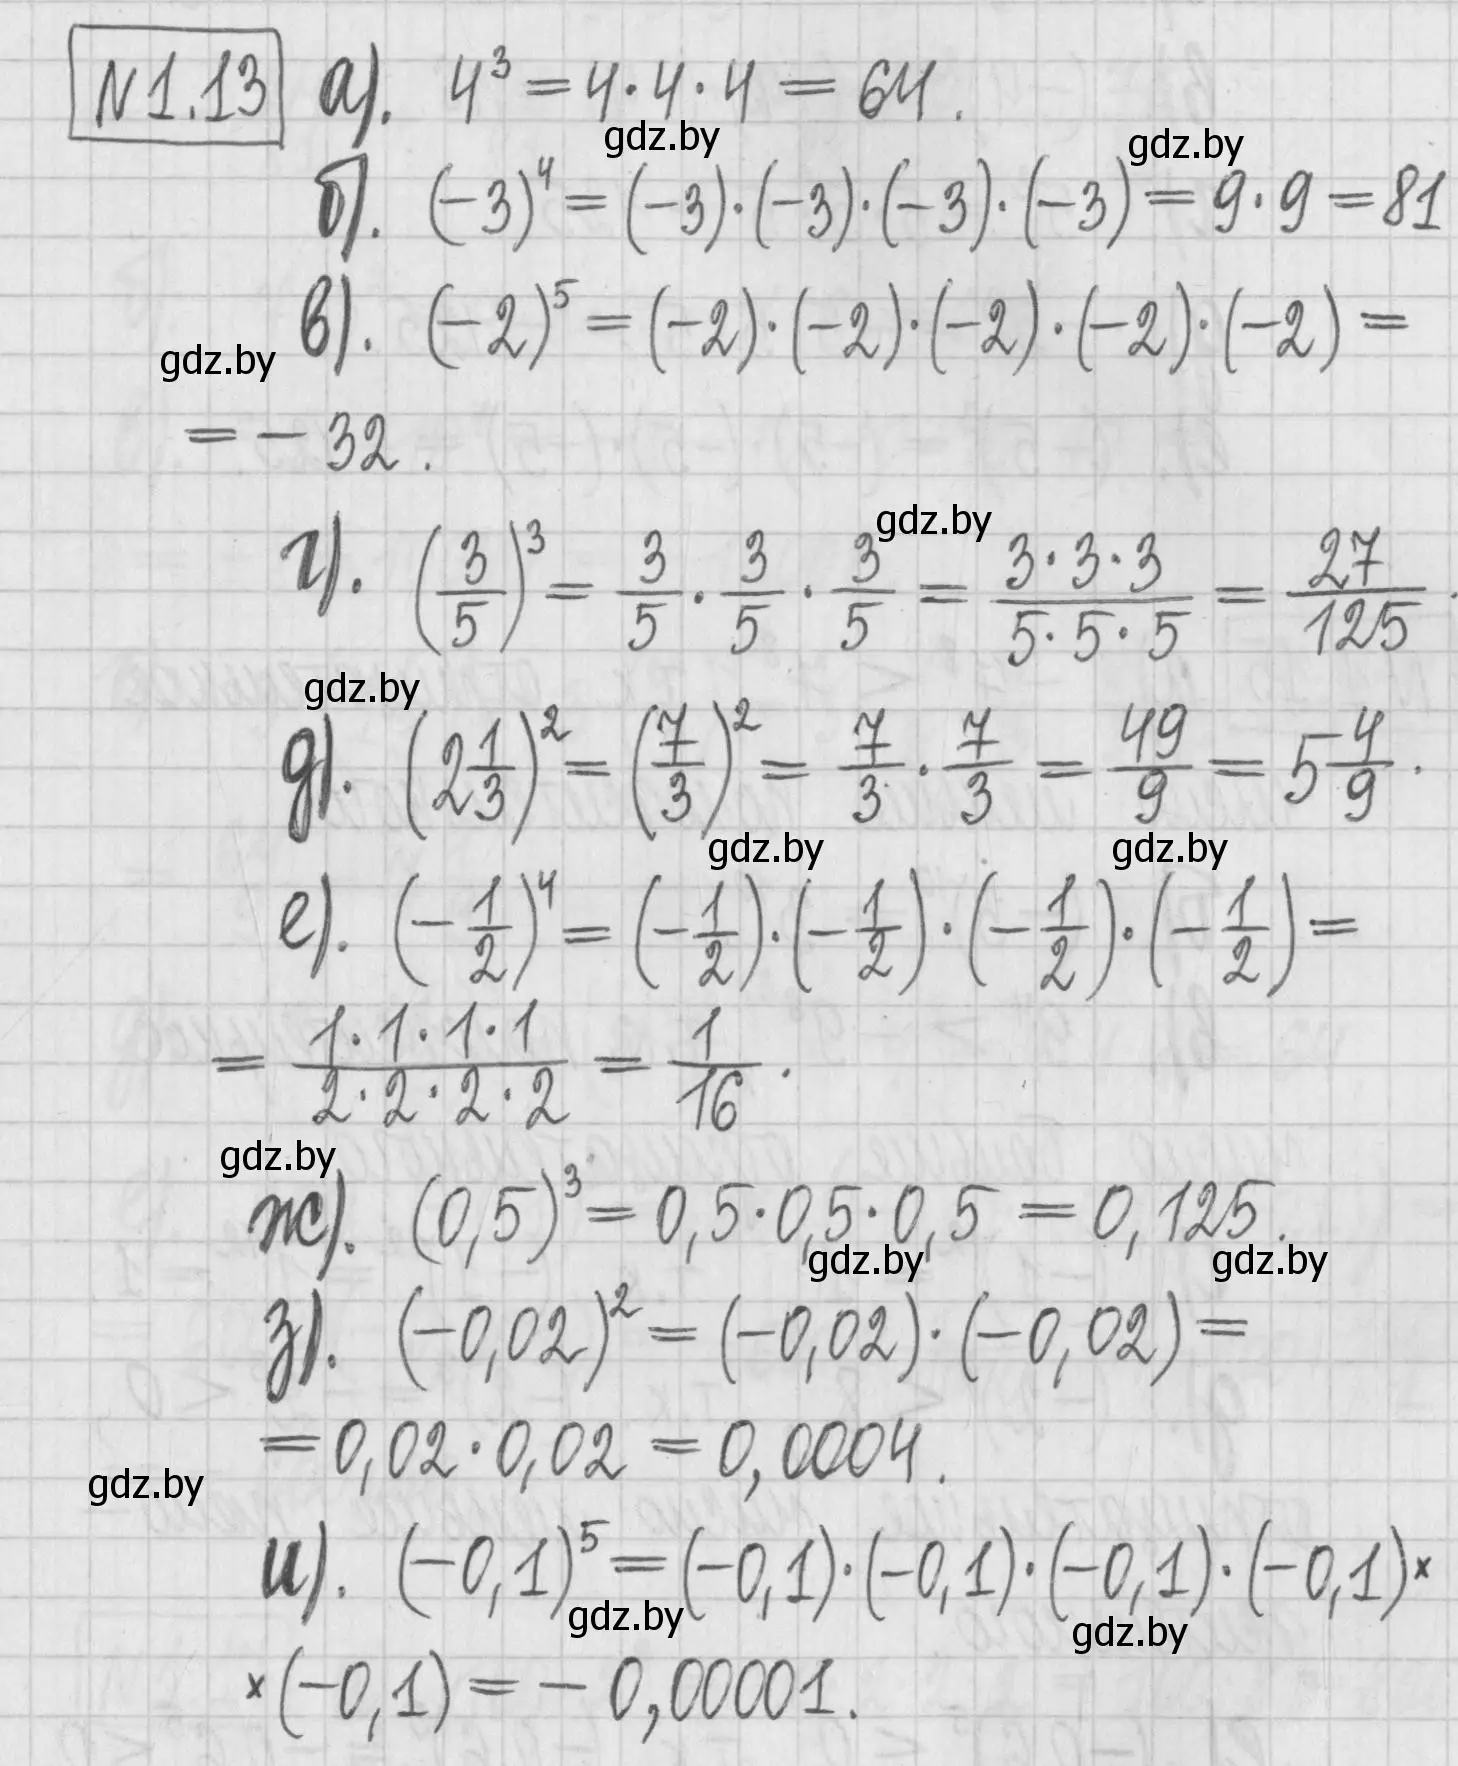 N1.13 а). 4³ = 4·4·4 = 64.
gdz.by gdz.by
б). (-3)⁴ = (-3)·(-3)·(-3)·(-3) = 9·9 = 81
в). (-2)⁵ = (-2)·(-2)·(-2)·(-2)·(-2) =
gdz.by
= - 32.
gdz.by
г). (3/5)³ = 3/5 · 3/5 · 3/5 = 3·3·3/5·5·5 = 27/125.
gdz.by
д). (2 1/3)² = (7/3)² = 7/3 · 7/3 = 49/9 = 5 4/9.
gdz.by gdz.by
е). (-1/2)⁴ = (-1/2)·(-1/2)·(-1/2)·(-1/2) =
= 1·1·1·1/2·2·2·2 = 1/16.
gdz.by
ж). (0,5)³ = 0,5·0,5·0,5 = 0,125.
gdz.by gdz.by
з). (-0,02)² = (-0,02)·(-0,02) =
= 0,02·0,02 = 0,0004.
gdz.by
и). (-0,1)⁵ = (-0,1)·(-0,1)·(-0,1)·(-0,1)×
gdz.by gdz.by
×(-0,1) = - 0,00001.